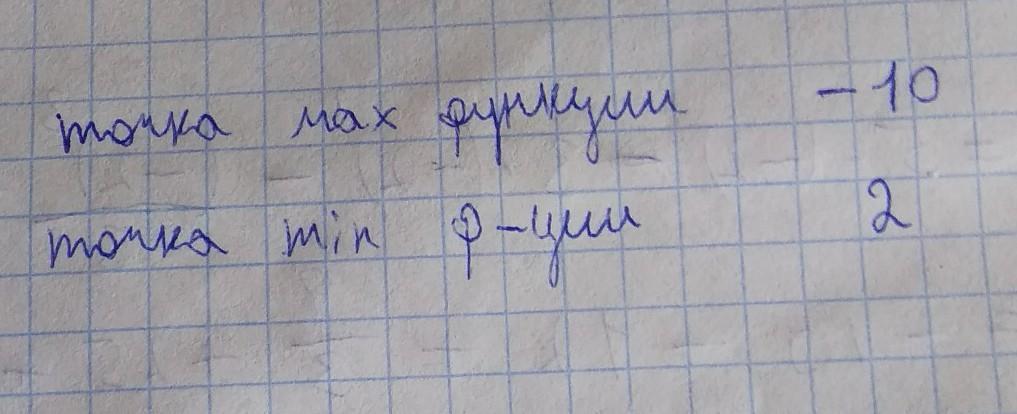 точка мах функции -10
точка min ф-ции 2